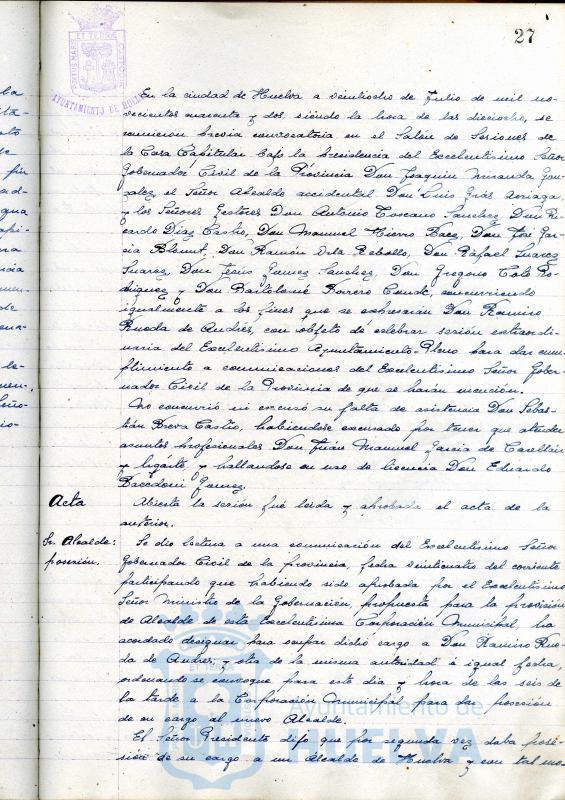 27
PORTUS MARIS ET TERRAE CUSTODIA
AYUNTAMIENTO DE HUELVA
En la ciudad de Huelva a veintiocho de Julio de mil no-
vecientos cuarenta y dos siendo la hora de las dieciocho, se
reunieron previa convocatoria en el Salón de Sesiones de
la Casa Capitular bajo la Presidencia del Excelentísimo Señor
Gobernador Civil de la Provincia Don Joaquin Miranda Gon-
zalez el Señor Alcalde accidental Don Luis Grás Arriaga,
y los Señores Gestores Don Antonio Toscano Sanchez, Don Ri-
cardo Diaz Casto, Don Manuel Hierro Baez, Don José Gar-
cia Blamut, Don Ramón Vila Rebollo, Don Rafael Suarez
Suarez, Don Jesús Gomez Sanchez, Don Gregorio Tolá Ro-
driguez y Don Bartolomé Borrero Conde, concurriendo
igualmente a los fines que se expresarán Don Ramiro
Rueda de Andrés, con objeto de celebrar sesión extraordi-
naria del Excelentísimo Ayuntamiento-Pleno para dar cum-
plimiento a comunicaciones del Excelentísimo Señor Gober-
nador Civil de la Provincia de que se harán mención.
No concurrió ni excusó su falta de asistencia Don Sebas-
tián Castro, habiendose excusado por tener que atender
asuntos profesionales Don Juán Manuel Garcia de Casellán
y y hallandose en uso de licencia Don Eduardo
Gomez.
Acta
Abierta la sesión fué leida y aprobada el acta de la
anterior.
Sr. Alcalde:
posesión.
Se dio lectura a una comunicación del Excelentísimo Señor
Gobernador Civil de la provincia, fecha veinticuatro del corriente
participando que habiendo sido aprobada por el Excelentísimo
Señor Ministro de la Gobernación, propuesta para la provisión
de Alcalde de esta Excelentísima Corporación Municipal, ha
acordado designar para ocupar dicho cargo a Don Ramiro Rue-
da de Andrés, y otra de la misma autoridad é igual fecha,
ordenando se convoque para este dia y hora de las seis de
la tarde a la Corporación Municipal para dar posesión
de su cargo al nuevo Alcalde.
El Señor Presidente dijo que por segunda vez daba pose-
sión de su cargo a un Alcalde de Huelva y con tal mo-
Ayuntamiento de
HUELVA